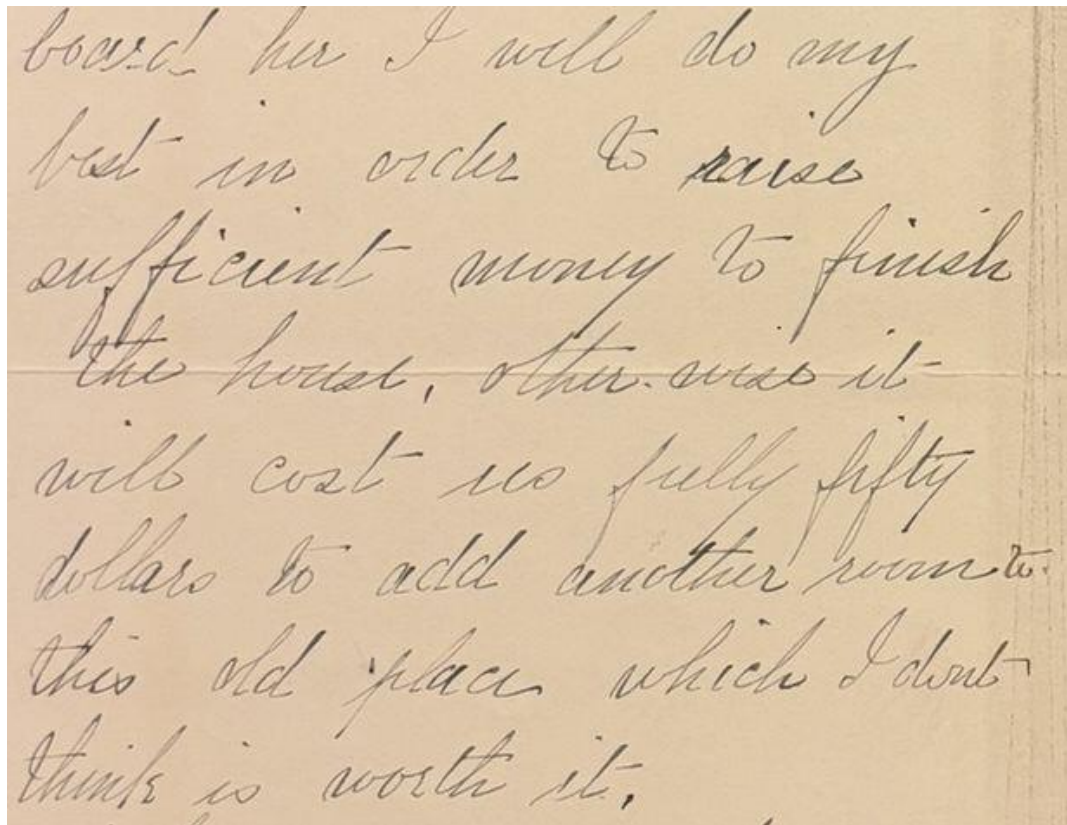 board her I will do my
best in order to raise
sufficient money to finish
the house, other-wise it
will cost us fully fifty
dollars to add another room to
this old place which I dont
think is worth it.